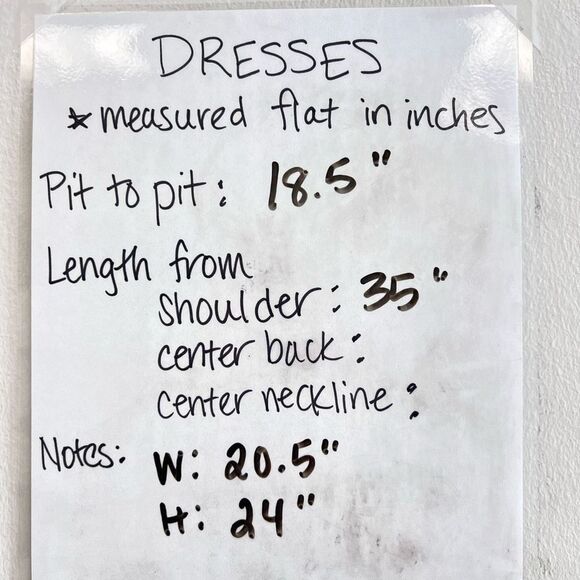 DRESSES
* measured flat in inches
Pit to pit: 18.5"
Length from
shoulder: 35"
center back:
center neckline:
Notes: W: 20.5"
H: 24"